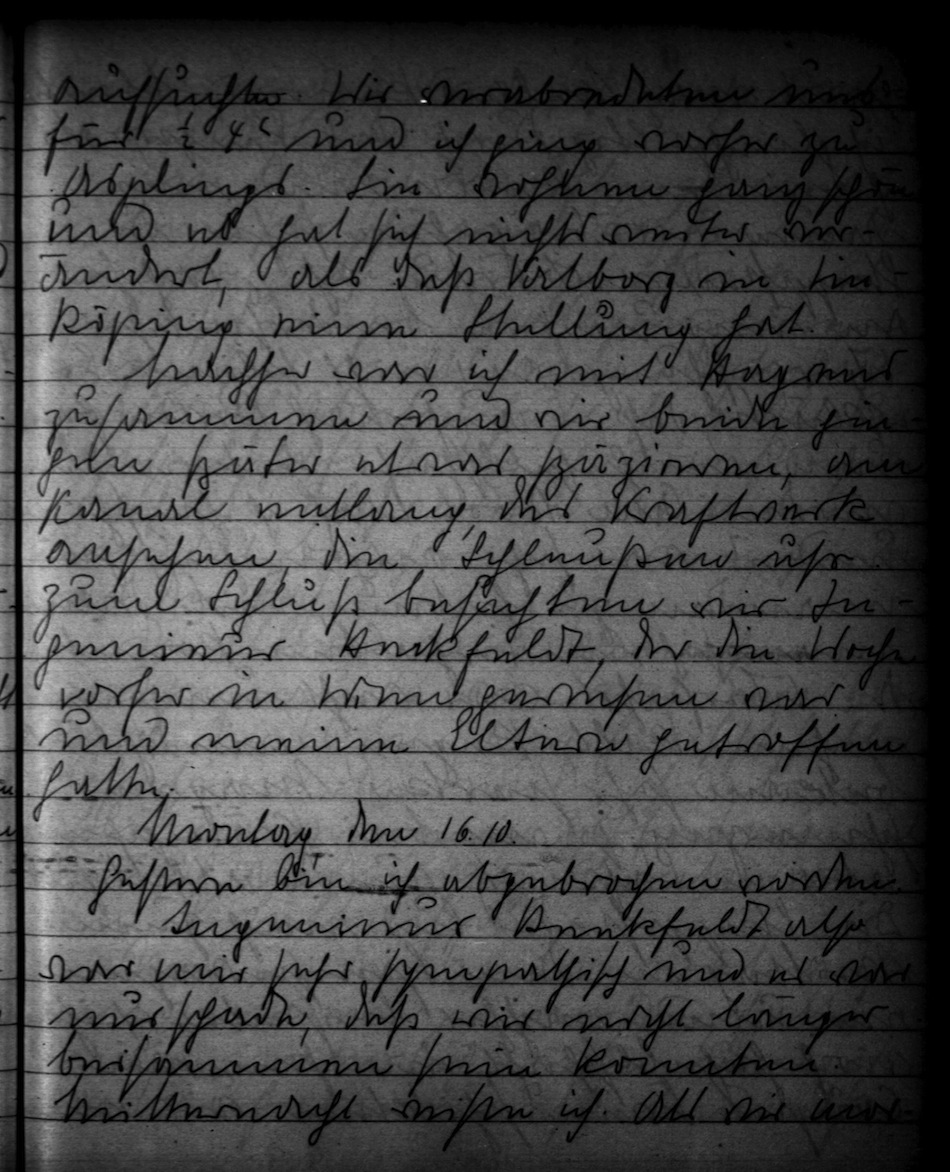 aufsuchten. Wir verabredeten uns
für ½ 4ʰ und ich ging vorher zu
Asplings. Sie wohnen ganz schön
und es hat sich nichts weiter ver-
ändert, als daß Valborg in Lin-
köping eine Stellung hat.
Nachher war ich mit Magnus
zusammen und wir beide gin-
gen später etwas spazieren, am
Kanal entlang, das Kraftwerk
ansehen, die Schleußen usw.
zum Schluß besuchten wir In-
genieur, der die Woche
vorher in Wien gewesen war
und meine Eltern getroffen
hatte.
Montag den 16.10.
Gestern bin ich abgebrochen worden.
Ingenieur also
war mir sehr sympathisch und es war
nur schade, daß wir nicht länger
beisammen sein konnten.
Mitternacht reiste ich. Als wir mor-